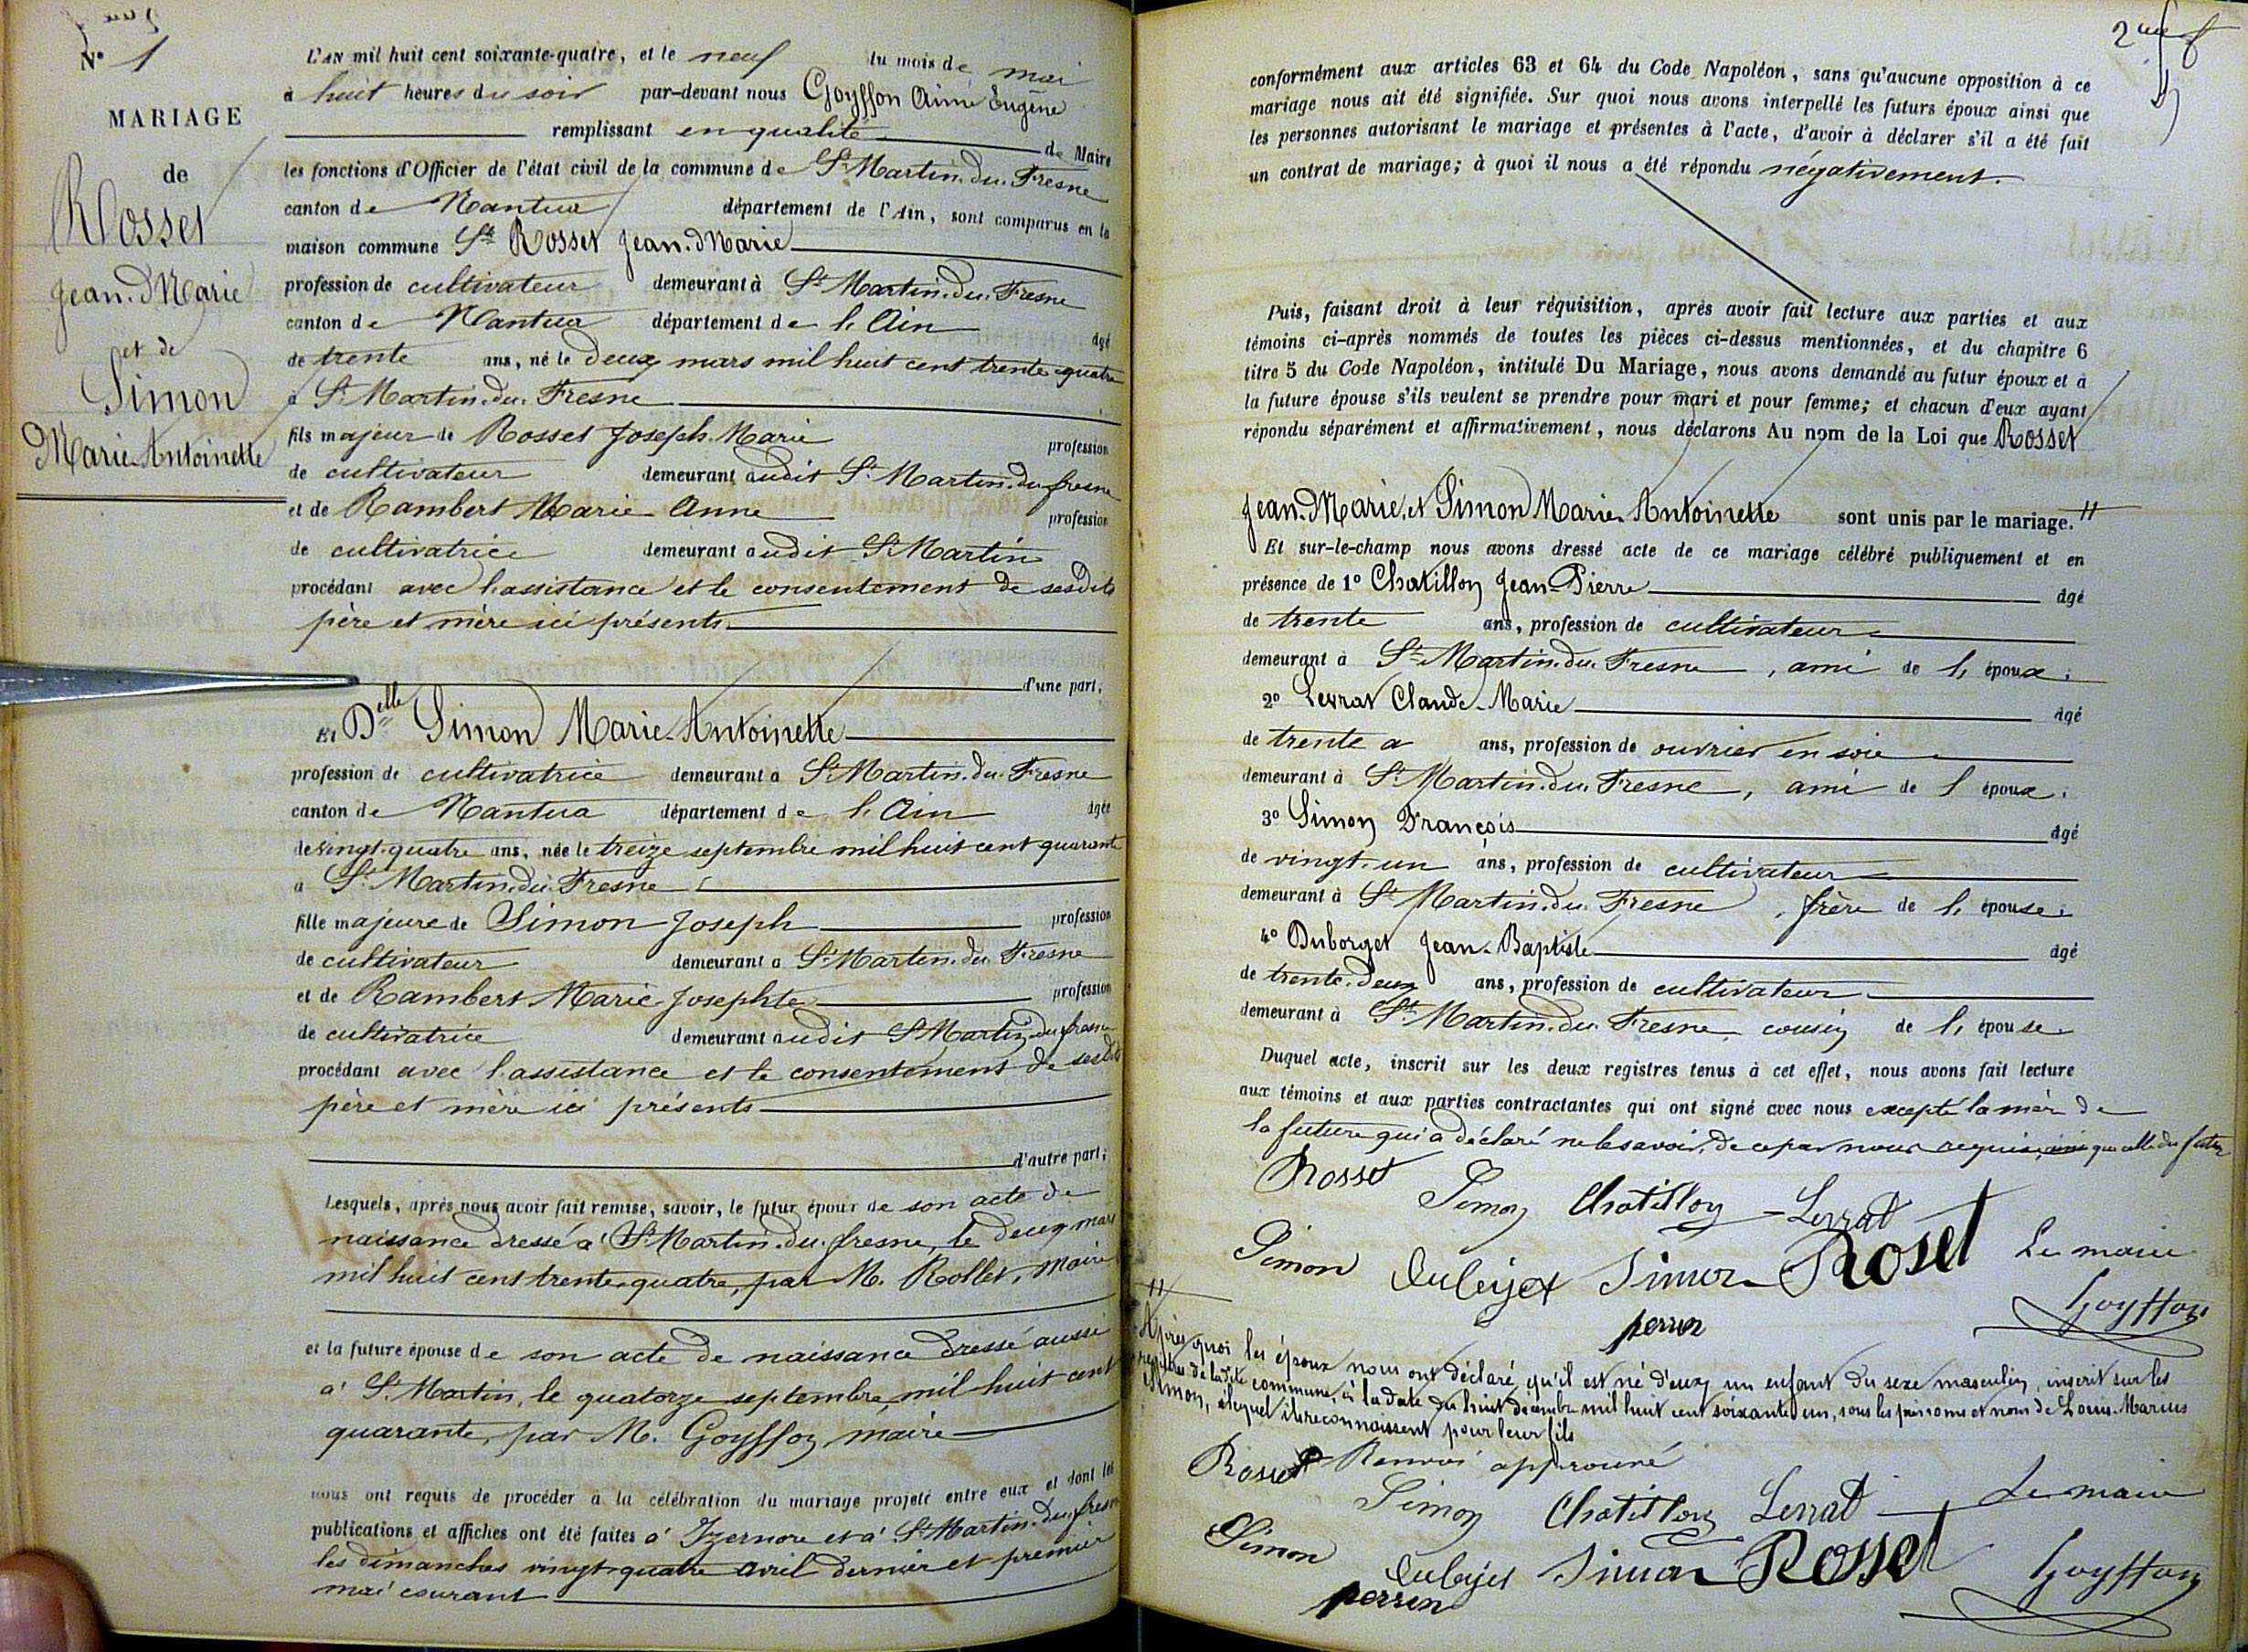 N° 1
MARIAGE
de
Rosset
Jean-Marie
et de
Simon
Marie-Antoinette
L'AN mil huit cent soixante-quatre, et le neuf du mois de mai
à huit heures du soir par-devant nous Goyffon Aimé Eugène
remplissant en qualité de Maire
les fonctions d'Officier de l'état civil de la commune de St Martin-du-Fresne
canton de Nantua département de l'Ain, sont comparus en la
maison commune Sr Rosset Jean-Marie
profession de cultivateur demeurant à St Martin-du-Fresne
canton de Nantua département de l'Ain âgé
de trente ans, né le deux mars mil huit cent trente-quatre
à St Martin-du-Fresne
fils majeur de Rosset Joseph-Marie profession
de cultivateur demeurant audit St Martin-du-fresne
et de Rambert Marie-Anne profession
de cultivatrice demeurant audit St Martin
procédant avec l'assistance et le consentement de sesdits
père et mère ici présents
d'une part;
Et Delle Simon Marie-Antoinette
profession de cultivatrice demeurant à St Martin-du-Fresne
canton de Nantua département de l'Ain âgée
de vingt-quatre ans, née le treize septembre mil huit cent quarante
à St Martin-du-Fresne
fille majeure de Simon Joseph profession
de cultivateur demeurant à St Martin-du-Fresne
et de Rambert Marie-Josephte profession
de cultivatrice demeurant audit St Martin-du-fresne
procédant avec l'assistance et le consentement de sesdits
père et mère ici présents
d'autre part;
Lesquels, après nous avoir fait remise, savoir, le futur époux de son acte de
naissance dressé à St Martin-du-fresne, le deux mars
mil huit cent trente-quatre, par M. Rollet, maire
et la future épouse de son acte de naissance dressé aussi
à St Martin, le quatorze septembre, mil huit cent
quarante, par M. Goyffon, maire
nous ont requis de procéder à la célébration du mariage projeté entre eux et dont les
publications et affiches ont été faites à Izernore et à St Martin-du-fresne
les dimanches vingt-quatre avril dernier et premier
mai courant
conformément aux articles 63 et 64 du Code Napoléon, sans qu'aucune opposition à ce
mariage nous ait été signifiée. Sur quoi nous avons interpellé les futurs époux ainsi que
les personnes autorisant le mariage et présentes à l'acte, d'avoir à déclarer s'il a été fait
un contrat de mariage; à quoi il nous a été répondu négativement.
Puis, faisant droit à leur réquisition, après avoir fait lecture aux parties et aux
témoins ci-après nommés de toutes les pièces ci-dessus mentionnées, et du chapitre 6
titre 5 du Code Napoléon, intitulé Du Mariage, nous avons demandé au futur époux et à
la future épouse s'ils veulent se prendre pour mari et pour femme; et chacun d'eux ayant
répondu séparément et affirmativement, nous déclarons Au nom de la Loi que Rosset
Jean-Marie, et Simon Marie-Antoinette sont unis par le mariage. //
Et sur-le-champ nous avons dressé acte de ce mariage célébré publiquement et en
présence de 1° Chatillon Jean-Pierre âgé
de trente ans, profession de cultivateur
demeurant à St Martin-du-Fresne, ami de l'époux;
2° Levrat Claude-Marie âgé
de trente a ans, profession de ouvrier en soie
demeurant à St Martin-du-Fresne, ami de l époux;
3° Simon François âgé
de vingt-un ans, profession de cultivateur
demeurant à St Martin-du-Fresne, frère de l'épouse;
4° Duborget Jean-Baptiste âgé
de trente-deux ans, profession de cultivateur
demeurant à St Martin-du-Fresne cousin de l'épouse
Duquel acte, inscrit sur les deux registres tenus à cet effet, nous avons fait lecture
aux témoins et aux parties contractantes qui ont signé avec nous excepté la mère de
la future qui a déclaré ne le savoir, de ce par nous requise, ainsi que celle du futur
Rosset Simon Chatillon Levrat
Simon Simon Roset Le maire
perrin Goyffon
// Après quoi les époux nous ont déclaré qu'il est né d'eux, un enfant du sexe masculin, inscrit sur les
registres de la dite commune, à la date du huit décembre mil huit cent soixante un, sous les prénoms et nom de Louis-Marius
Simon, lequel ils reconnaissent pour leur fils
Rosset Renvoi approuvé
Simon Chatillon Levrat Le maire
Simon Simon Rosset Goyffon
perrin